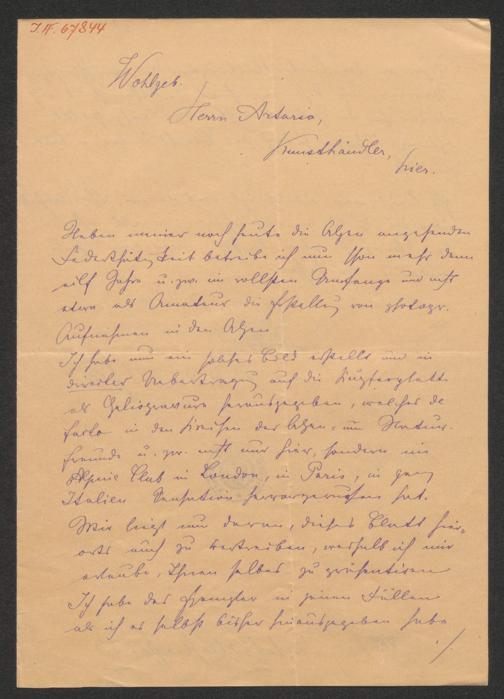 I.N. 67844
Wohlgeb.
Herrn Artaria,
Kunsthändler,
hier.
Neben meiner noch heute die Alpen angehenden
Federthätigkeit betreibe ich nun schon mehr denn
eilf Jahre u. zw. im vollsten Umfange und nicht
etwa als Amateur die Herstellung von photogr.
Aufnahmen in den Alpen
Ich habe nun ein solches Bild erstellt und in
directer Uebertragung auf die Kupferplatte
als Heliogravure herausgegeben, welches de
facto in den Kreisen der Alpen- und Natur-
freunde u. zw. nicht nur hier, sondern im
Alpine Club in London, in Paris, in ganz
Italien Sensation hervorgerufen hat.
Mir liegt nun daran, dieses Blatt hier-
orts auch zu vertreiben, weshalb ich mir
erlaube, Ihnen selbes zu präsentiren
Ich habe das Exemplar in jenen Fällen
als ich es selbst bisher hinausgegeben habe